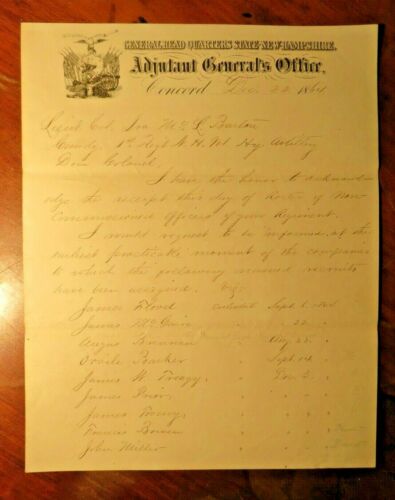 GENERAL HEAD QUARTERS STATE NEW-HAMPSHIRE,
Adjutant General's Office,
Concord Dec. 22 1864
Lieut. Col. Ira McL. Barton
Comdg. 1st Regt N. H. Vol Hy. Artillery
Dear Colonel
I have the honor to acknowl-
edge the receipt this day of Roster of Non
Commissioned Officers of your Regiment.
I would request to be informed at the
earliest practicable moment of the companies
to which the following named recruits
have been assigned.
James Floyd enlisted Sept. 1. 1864
James McGuire " 22. "
Angus Buchanan Aug 25. "
Orville Barker " Sept.
James W. " Dec. 2. "
James Prior, " " " "
James " " " "
Francis Bowen " " "
John Miller " "